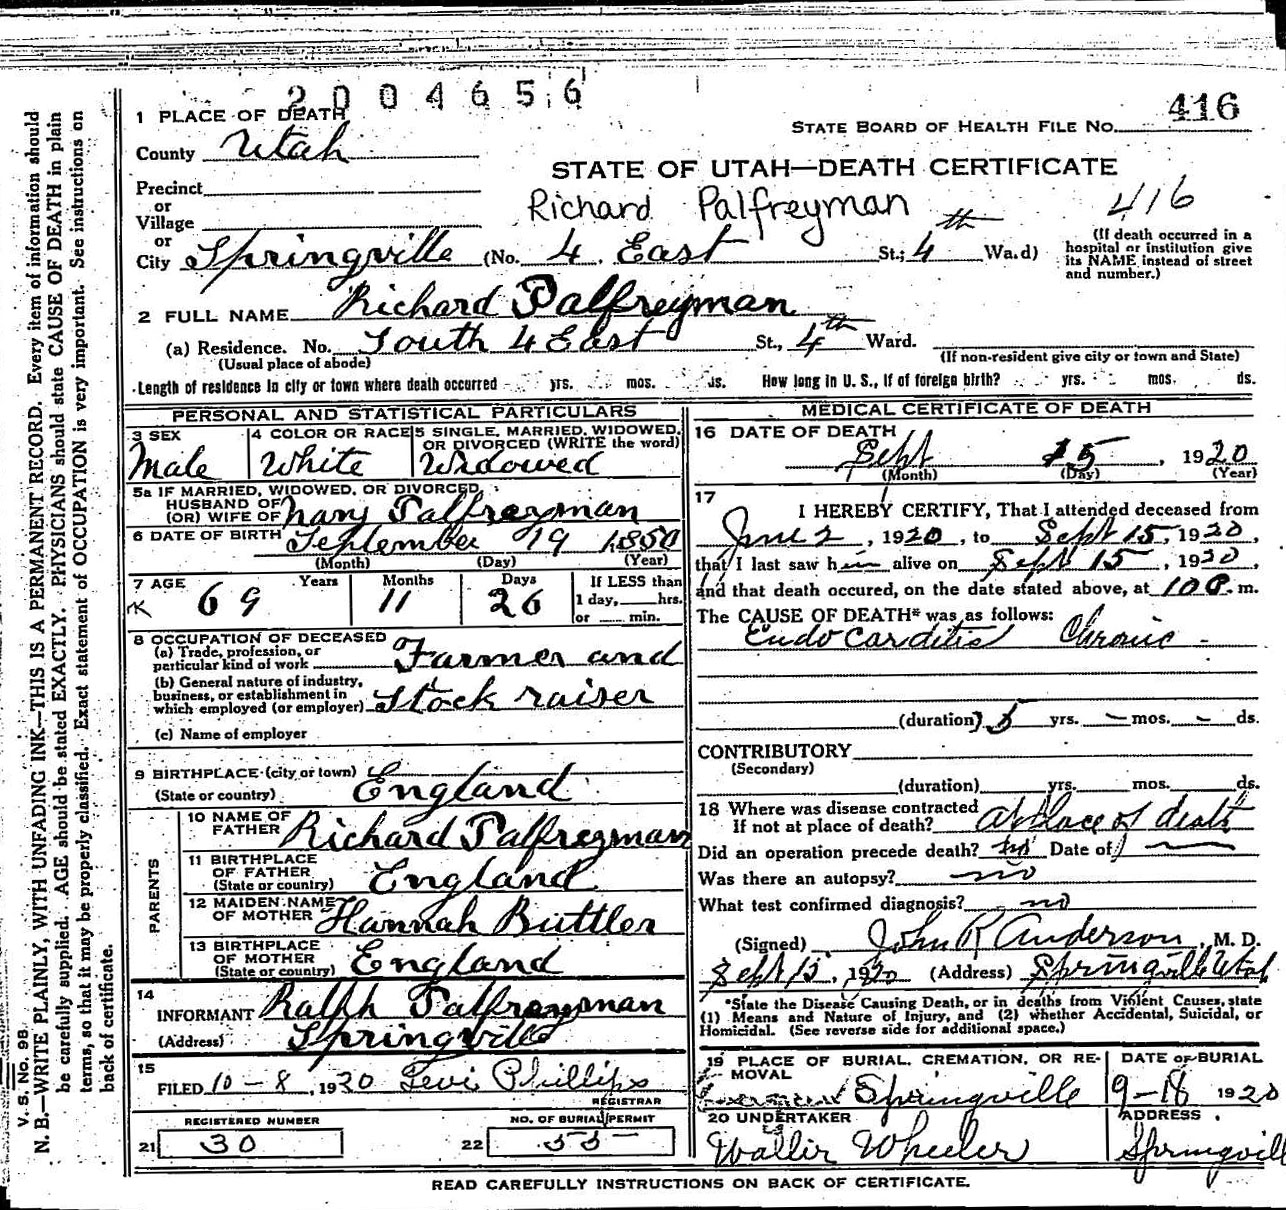 2004656
416
1 PLACE OF DEATH
STATE BOARD OF HEALTH FILE No.
County Utah
STATE OF UTAH—DEATH CERTIFICATE
Precinct
or
Village
Richard Palfreyman
416
or
City Springville (No. 4 East St.; 4th Ward)
(If death occurred in a hospital or institution give its NAME instead of street and number.)
2 FULL NAME Richard Palfreyman
(a) Residence. No. South 4 East St., 4th Ward.
(Usual place of abode) (If non-resident give city or town and State)
Length of residence in city or town where death occurred yrs. mos. ds. How long in U. S., if of foreign birth? yrs. mos. ds.
PERSONAL AND STATISTICAL PARTICULARS
3 SEX Male
4 COLOR OR RACE White
5 SINGLE, MARRIED, WIDOWED, OR DIVORCED (WRITE the word) Widowed
5a IF MARRIED, WIDOWED, OR DIVORCED
HUSBAND OF
(OR) WIFE OF Palfreyman
6 DATE OF BIRTH September 19 1850
(Month) (Day) (Year)
7 AGE 69 Years 11 Months 26 Days
If LESS than 1 day, hrs. or min.
8 OCCUPATION OF DECEASED
(a) Trade, profession, or particular kind of work Farmer and
(b) General nature of industry, business, or establishment in which employed (or employer) Stock raiser
(c) Name of employer
9 BIRTHPLACE (city or town)
(State or country) England
PARENTS
10 NAME OF FATHER Richard Palfreyman
11 BIRTHPLACE OF FATHER (State or country) England
12 MAIDEN NAME OF MOTHER Hannah Buttler
13 BIRTHPLACE OF MOTHER (State or country) England
14
INFORMANT Ralph Palfreyman
(Address) Springville
15
FILED 10-8, 1920 Levi Phillips
REGISTRAR
REGISTERED NUMBER
21 30
NO. OF BURIAL PERMIT
22 55
MEDICAL CERTIFICATE OF DEATH
16 DATE OF DEATH
Sept 15, 1920
(Month) (Day) (Year)
17
I HEREBY CERTIFY, That I attended deceased from
June 2, 1920, to Sept 15, 1920,
that I last saw him alive on Sept 15, 1920,
and that death occured, on the date stated above, at 10 P. m.
The CAUSE OF DEATH* was as follows:
Endocarditis Chronic
(duration) 5 yrs. — mos. — ds.
CONTRIBUTORY
(Secondary)
(duration) yrs. mos. ds.
18 Where was disease contracted
If not at place of death? at place of death
Did an operation precede death? no Date of
Was there an autopsy? no
What test confirmed diagnosis? no
(Signed) John R Anderson, M. D.
Sept 15, 1920 (Address) Springville Utah
*State the Disease Causing Death, or in deaths from Violent Causes, state (1) Means and Nature of Injury, and (2) whether Accidental, Suicidal, or Homicidal. (See reverse side for additional space.)
19 PLACE OF BURIAL, CREMATION, OR REMOVAL
Springville
DATE OF BURIAL
9-18 1920
20 UNDERTAKER
Wheeler
ADDRESS
Springville
READ CAREFULLY INSTRUCTIONS ON BACK OF CERTIFICATE.
V. S. No. 98
N. B.—WRITE PLAINLY, WITH UNFADING INK—THIS IS A PERMANENT RECORD. Every item of information should
be carefully supplied. AGE should be stated EXACTLY. PHYSICIANS should state CAUSE OF DEATH in plain
terms, so that it may be properly classified. Exact statement of OCCUPATION is very important. See instructions on
back of certificate.